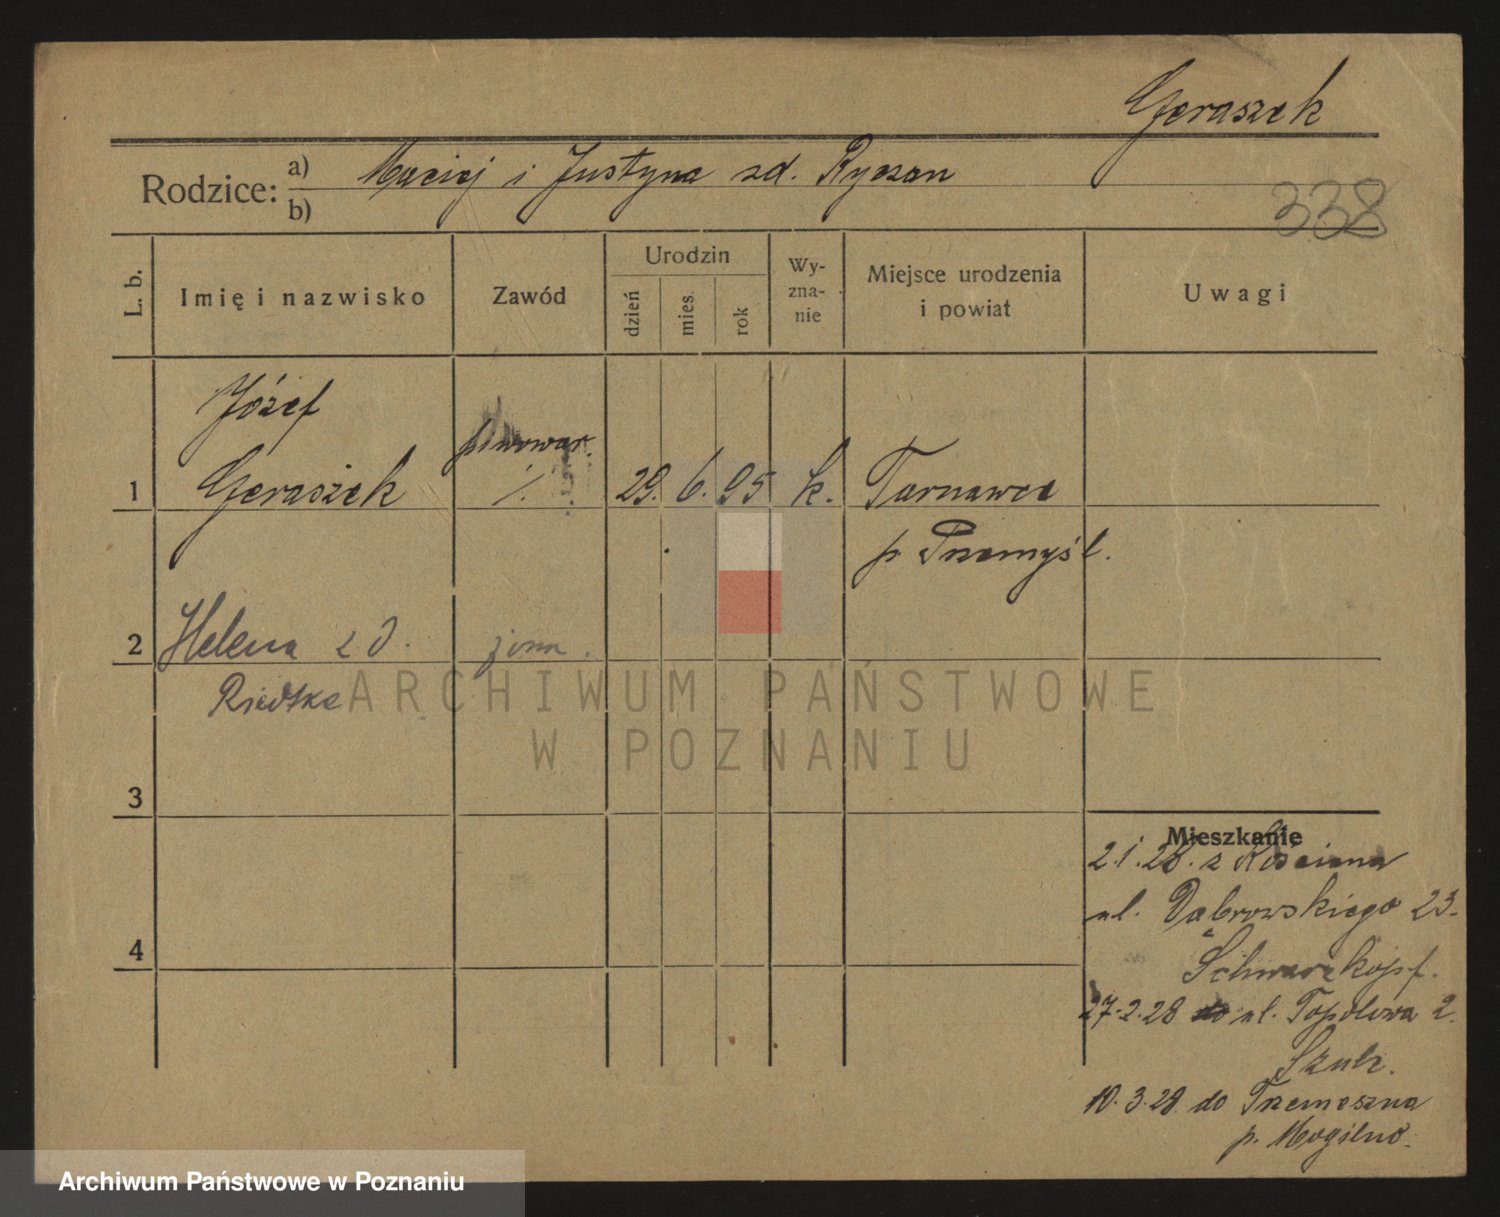 Geraszek
Rodzice: a) Maciej i Justyna zd. Ryczan
b)
338
L. b.
Imię i nazwisko
Zawód
Urodzin
dzień
mies.
rok
Wy-
zna-
nie
Miejsce urodzenia
i powiat
Uwagi
Józef
piwowar.
1 Geraszek 29. 6. 95 k. Tarnawce
p. Przemyśl.
2 Helena zd. żona.
Riedtke
ARCHIWUM PAŃSTWOWE
W POZNANIU
3
Mieszkanie
2.1.28. z Kościana
ul. Dąbrowskiego 23.
4
Schwarzkopf.
27.2.28 do ul. Topolowa 2.
Szulz.
10.3.28 do Trzemeszna
p. Mogilno.
Archiwum Państwowe w Poznaniu